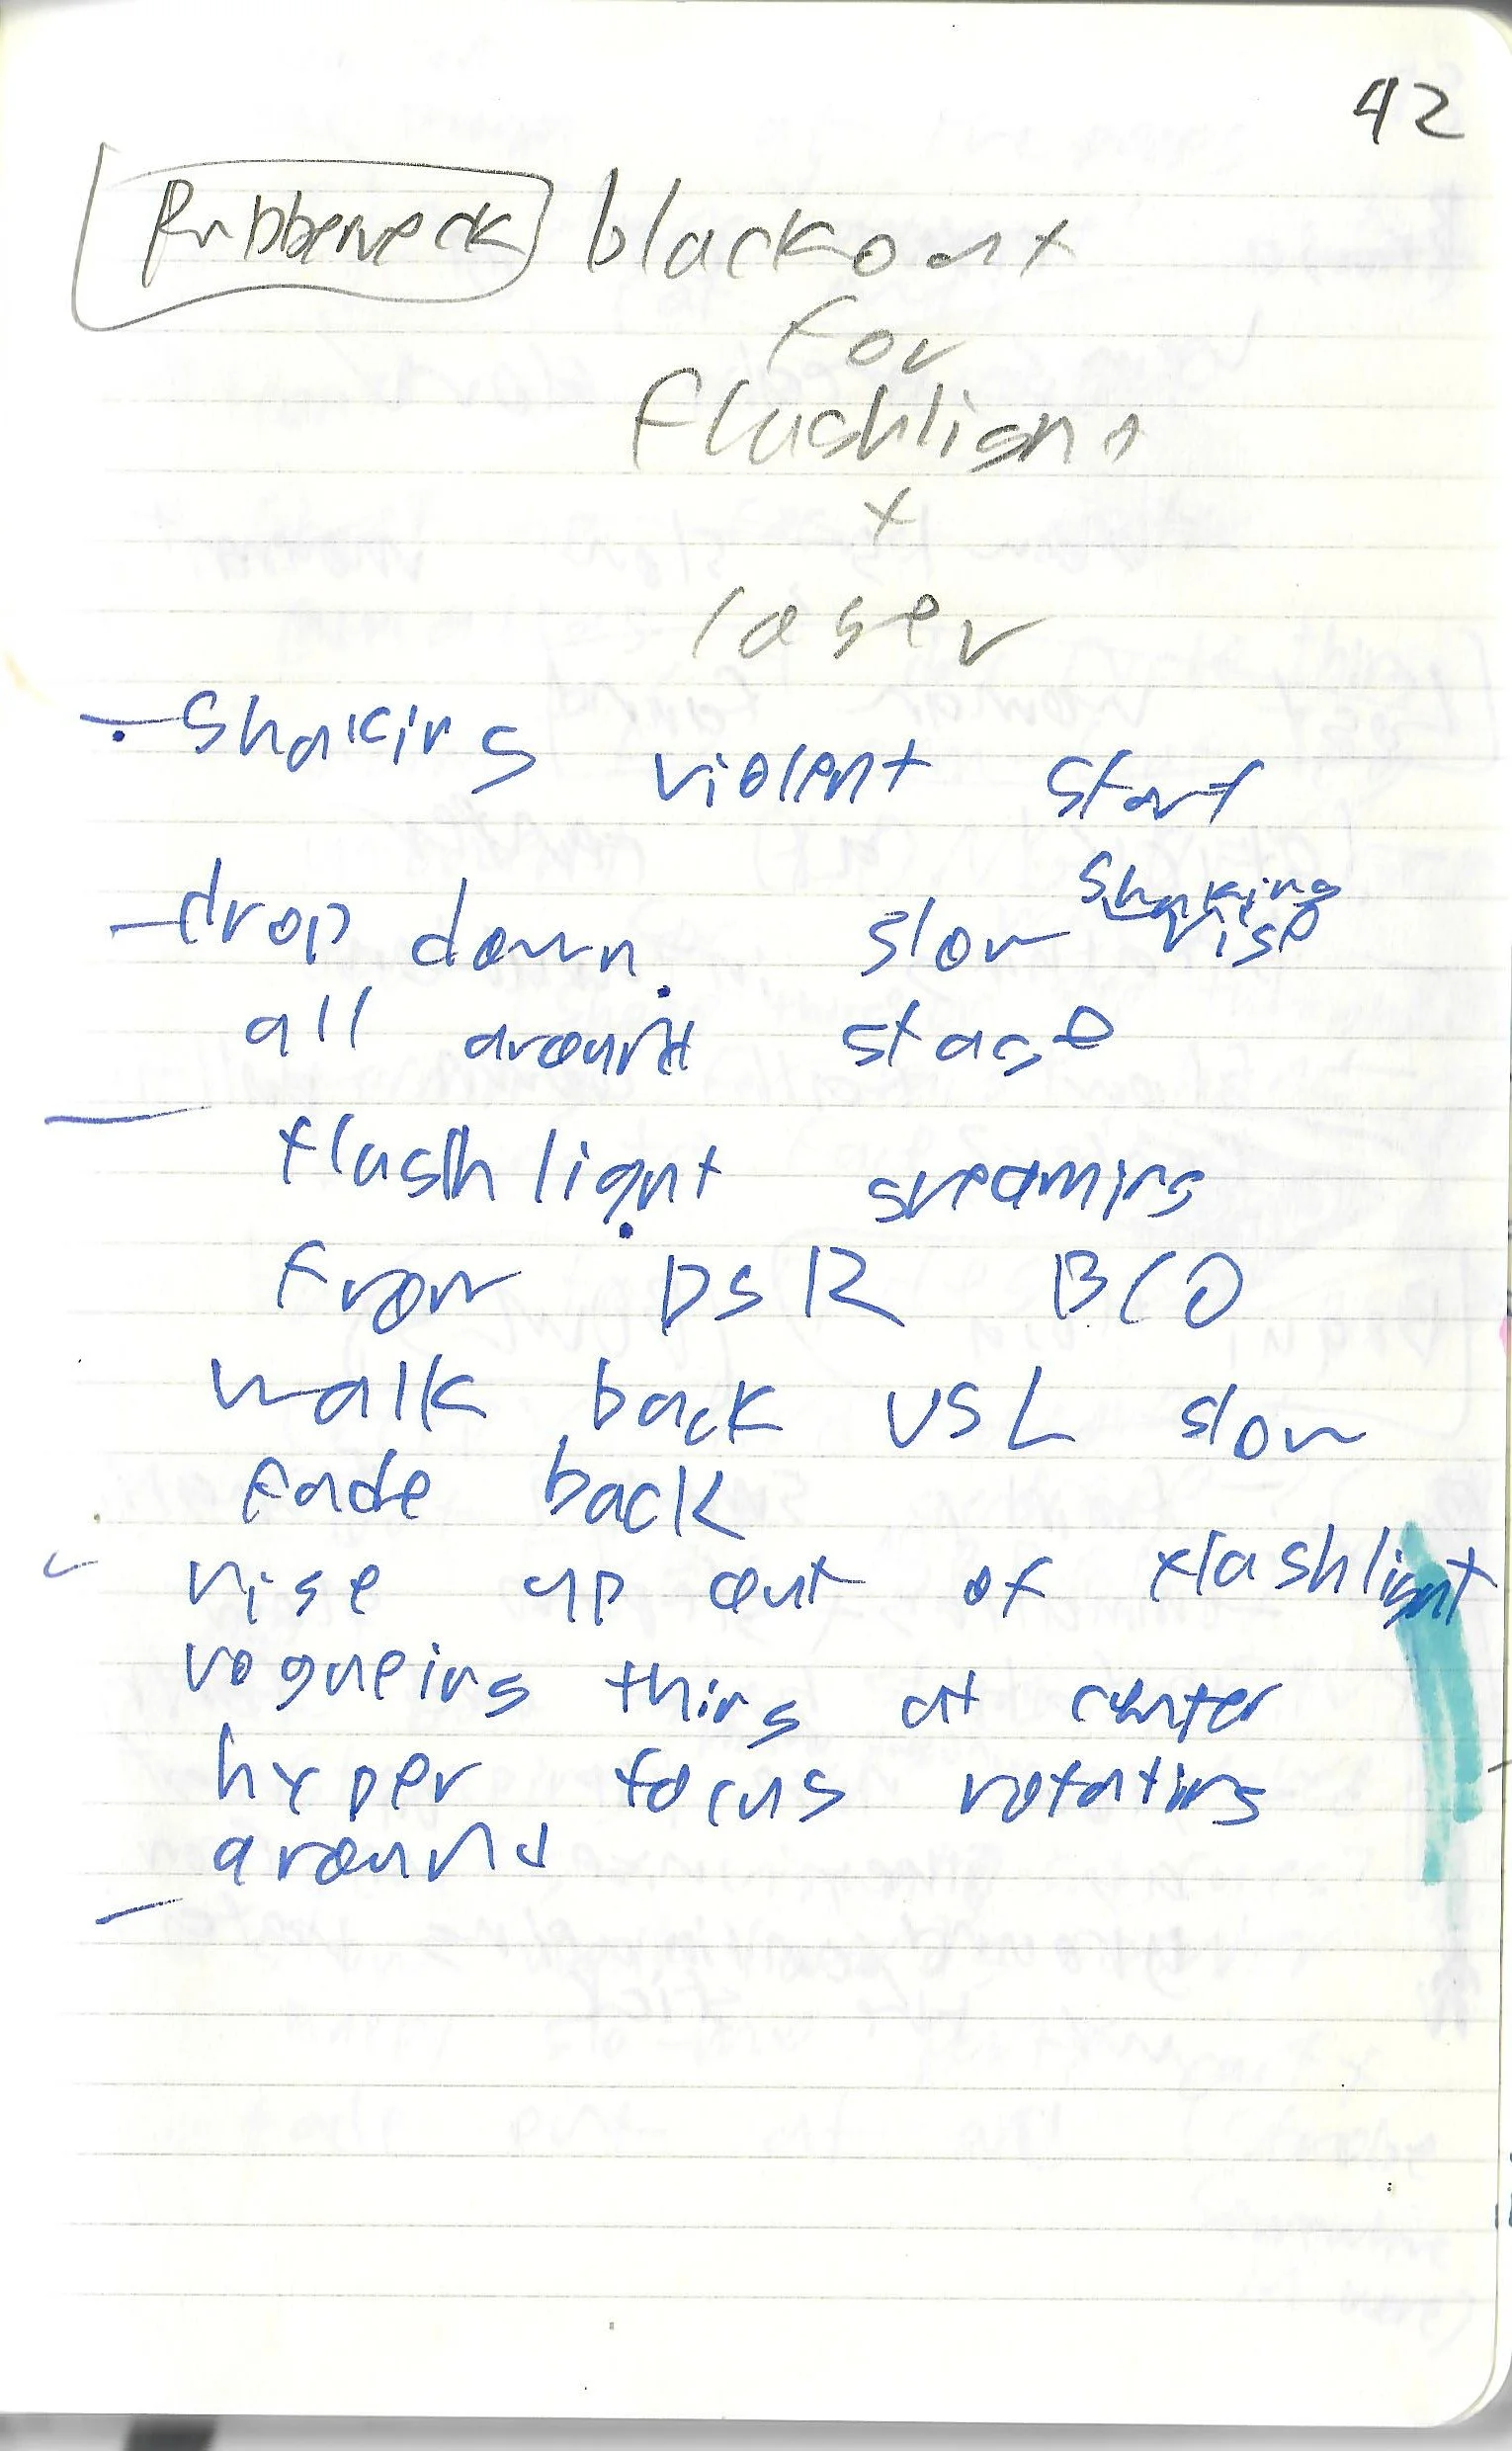 42
Rubberneck blackout
for
flashlight
+
laser
- Shaking violent start
- drop down. slow shaking rise
all around stage
- flashlight
from DSR
walk back USL slow
fade back
- rise up out of flashlight
vogueing thing at center
hyper focus rotating
around
-